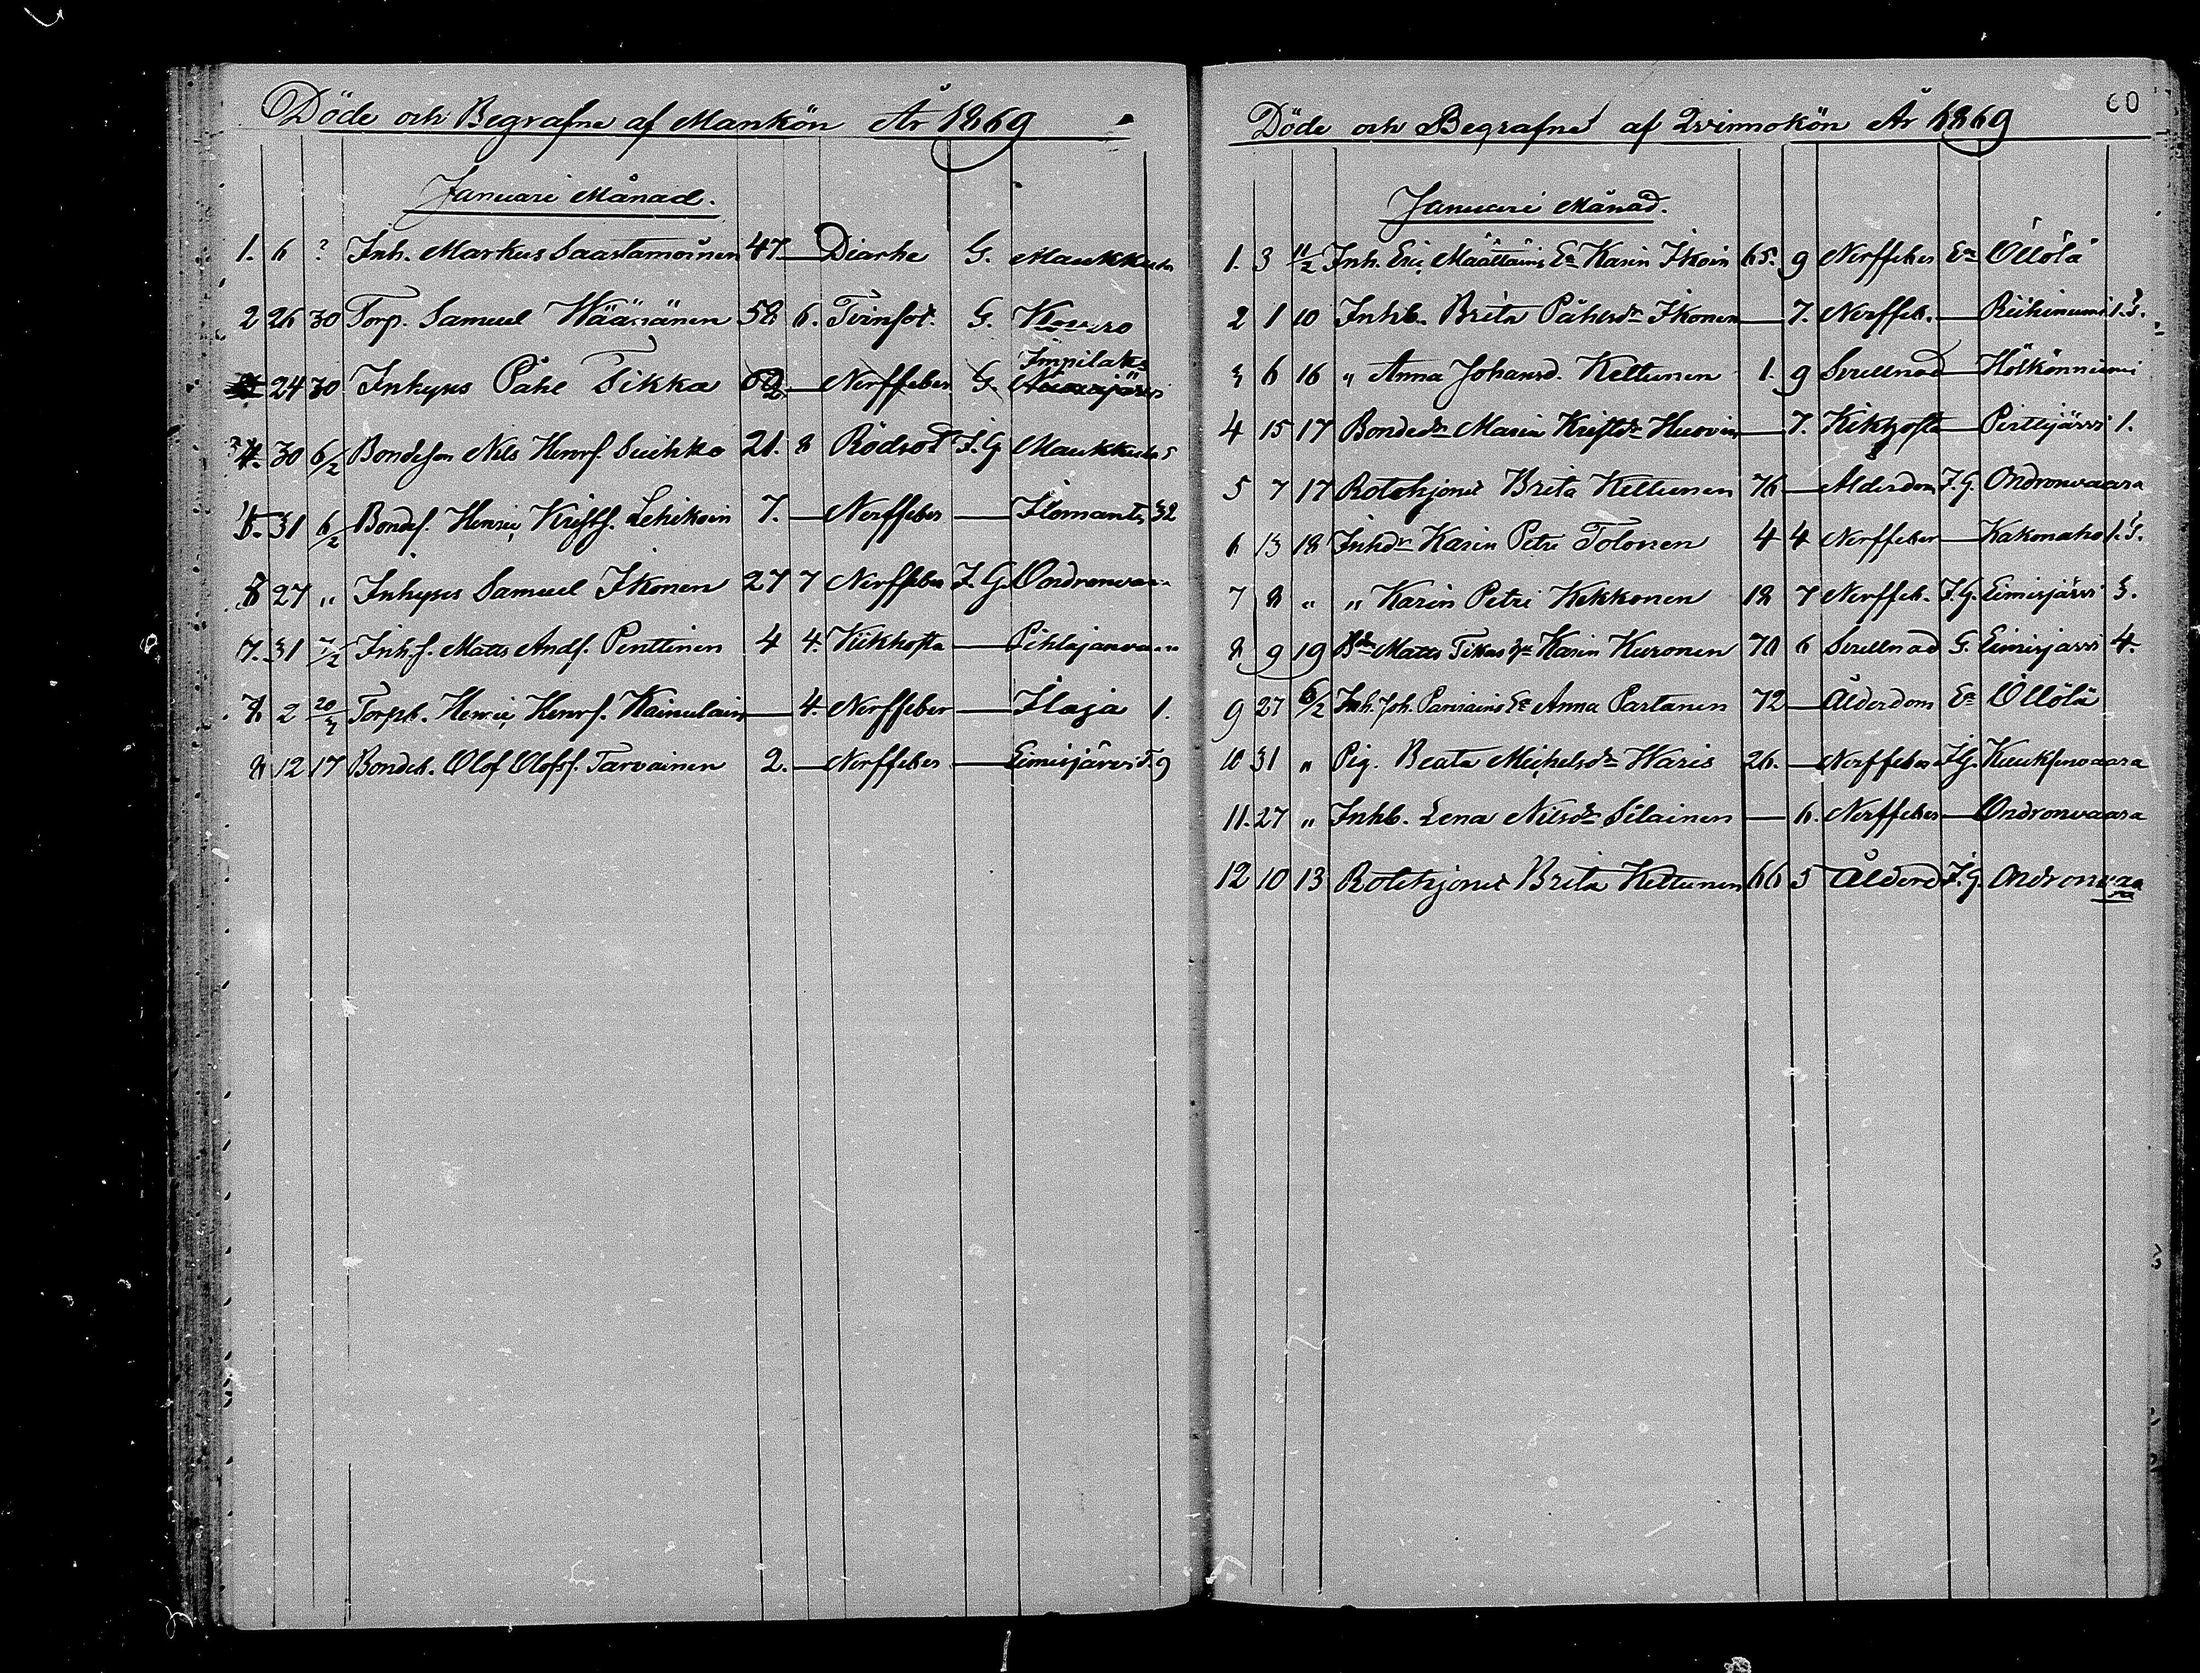 Döde och Begrafne af Mankön År 1869
Januari Månad.
1. 6 ? Inh. Markus Saastamoinen 47. — Diarhe G. Maukkula
2 26 30 Torp. Samuel Wääränen 58 6. Tvinsot. G. Kovero
24 30 Inhyses Påhl Tikka — Nerffeber G. Impilaks
4. 30 6/2 Bondeson Nils Henrs. Suihko 21. 8 Rödsot I.G. Maukkula 5
5. 31 6/2 Bondes. Henric Krists. Lehikoin 7. — Nerffeber — Ilomants 32
27 " Inhyses Samuel Ikonen 27 7 Nerffeber I.G. Ondronvaara
7. 31 7/2 Inh.s. Matts Ands. Penttinen 4 4. Kikhosta — Pihlajanvaara
2 20/3 Torpb. Henric Henrs. Kainulain — 4. Nerffeber — Ilaja 1.
8 12 17 Bondeb. Olof Olofs. Tarvainen 2. — Nerffeber — Eimisjärvi 9
60
Döde och Begrafne af Qvinnokön År 1869
Januari Månad.
1. 3 11/2 Inh. Eric Määttäins Ea Karin Ikoin 65. 9 Nerffeber Ea Öllölä
2 1 10 Inhb. Brita Påhlsdr Ikonen — 7. Nerffeb. — Riihiniemi 1.
3 6 16 " Anna Johansd. Keltunen 1. 9 Svullnad — Hölkönniemi
4 15 17 Bondedr Maria Kristdr Huovin — 7. Kikhosta — Perttijärvi 1.
5 7 17 Rotehjonet Brita Keltunen 76 — Alderdom I.G. Ondronvaara
6 13 18 Inhdr Karin Petri Tolonen 4 4 Nerffeber — Kakonaho 1.
7 8 " " Karin Petri Kekkonen 18 7 Nerffeb. I.G. Eimisjärvi 3.
8 9 19 Bde Matts Tikas Karin Kuronen 70 6 Svullnad G. Eimisjärvi 4.
9 27 6/2 Inh. Joh. Parviains Ea Anna Partanen 72 — Ålderdom Ea Öllölä
10 31 " Pig. Beata Michelsdr Haris 26. — Nerffeber I.G. Kuuksenvaara
11. 27 " Inhb. Lena Nilsdr Silainen — 6. Nerffeber — Ondronvaara
12 10 13 Rotehjonet Brita Keltunen 66 5 Ålderd I.G. Ondronvaara